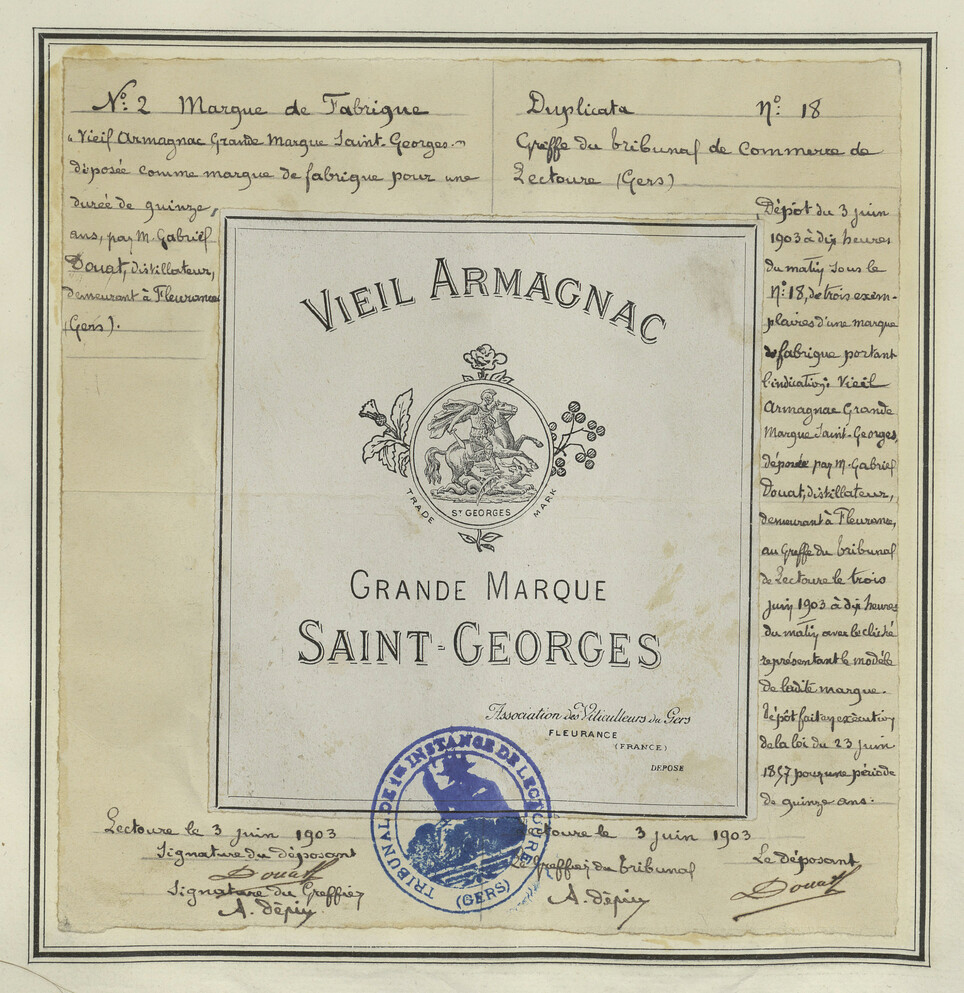 Nº 2 Marque de Fabrique
"Vieil Armagnac Grande Marque Saint-Georges."
déposée comme marque de fabrique pour une
durée de quinze
ans, par M. Gabriel
Douat, distillateur,
demeurant à Fleurance
(Gers).
Duplicata Nº 18
Greffe du tribunal de Commerce de
Lectoure (Gers)
Dépôt du 3 juin
1903 à dix heures
du matin sous le
Nº 18, de trois exem-
plaires d'une marque
de fabrique portant
l'indication: Vieil
Armagnac Grande
Marque Saint-Georges,
déposée par M. Gabriel
Douat, distillateur,
demeurant à Fleurance,
au Greffe du tribunal
de Lectoure le trois
juin 1903 à dix heures
du matin avec le cliché
représentant le modèle
de ladite marque.
Dépôt fait en exécution
de la loi du 23 juin
1857 pour une période
de quinze ans.
VIEIL ARMAGNAC
TRADE MARK
ST GEORGES
GRANDE MARQUE
SAINT-GEORGES
Association des Viticulteurs du Gers
FLEURANCE
(FRANCE)
DEPOSE
TRIBUNAL DE 1RE INSTANCE DE LECTOURE
(GERS)
Lectoure le 3 juin 1903
Signature du déposant
Douat
Signature du Greffier
A. Dépin
Lectoure le 3 juin 1903
Le Greffier du tribunal
A. Dépin
Le déposant
Douat